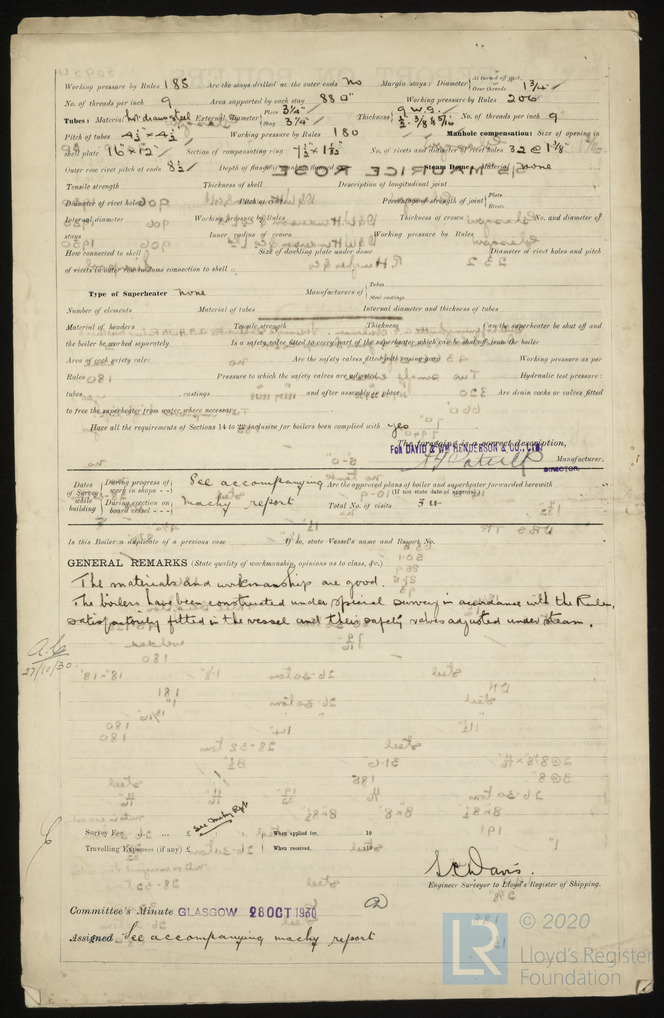 Working pressure by Rules 185 Are the stays drilled at the outer ends No Margin stays: Diameter { At turned off part, or Over threads 1 3/4"
No. of threads per inch 9 Area supported by each stay 88 □" Working pressure by Rules 206
Tubes: Material External diameter { Plain 3 1/4" Stay 3 1/4" Thickness { 9 W.G. No. of threads per inch 9
Pitch of tubes 4 1/2" x 4 1/2" Working pressure by Rules 180 Manhole compensation: Size of opening in
shell plate 16" x 12" Section of compensating ring No. of rivets and diameter of rivet holes 32 @ 1 1/8"
Outer row rivet pitch at ends 8 1/2 Depth of flange if manhole flanged Steam Dome: Material none
Tensile strength Thickness of shell Description of longitudinal joint
Diameter of rivet holes Pitch of rivets Percentage of strength of joint { Plate Rivets
Internal diameter Working pressure by Rules Thickness of crown No. and diameter of
stays Inner radius of crown Working pressure by Rules
How connected to shell Size of doubling plate under dome Diameter of rivet holes and pitch
of rivets in outer row in dome connection to shell
Type of Superheater none Manufacturers of { Tubes Steel castings
Number of elements Material of tubes Internal diameter and thickness of tubes
Material of headers Tensile strength Thickness Can the superheater be shut off and
the boiler be worked separately Is a safety valve fitted to every part of the superheater which can be shut off from the boiler
Area of each safety valve Are the safety valves fitted with easing gear Working pressure as per
Rules Pressure to which the safety valves are adjusted Hydraulic test pressure:
tubes castings and after assembly in place Are drain cocks or valves fitted
to free the superheater from water where necessary
Have all the requirements of Sections 14 to 22 inclusive for boilers been complied with yes
The foregoing is a correct description,
FOR DAVID & WM HENDERSON & CO., LTD. Manufacturer.
DIRECTOR.
Dates of Survey while building { During progress of work in shops - - See accompanying Are the approved plans of boiler and superheater forwarded herewith
(If not state date of approval.)
During erection on board vessel - - - machy report Total No. of visits 34
Is this Boiler a duplicate of a previous case If so, state Vessel's name and Report No.
GENERAL REMARKS (State quality of workmanship, opinions as to class, &c.)
The materials and workmanship are good.
The boilers have been constructed under special survey in accordance with the Rules,
satisfactorily fitted in the vessel and their safety valves adjusted under steam.
27/10/30
Survey Fee ... ... £ See Machy Rpt When applied for, 19
Travelling Expenses (if any) £ When received, 19
S.C. Davis.
Engineer Surveyor to Lloyd's Register of Shipping.
Committee's Minute GLASGOW 28 OCT 1930
Assigned See accompanying machy report
© 2020
LR
Lloyd's Register
Foundation